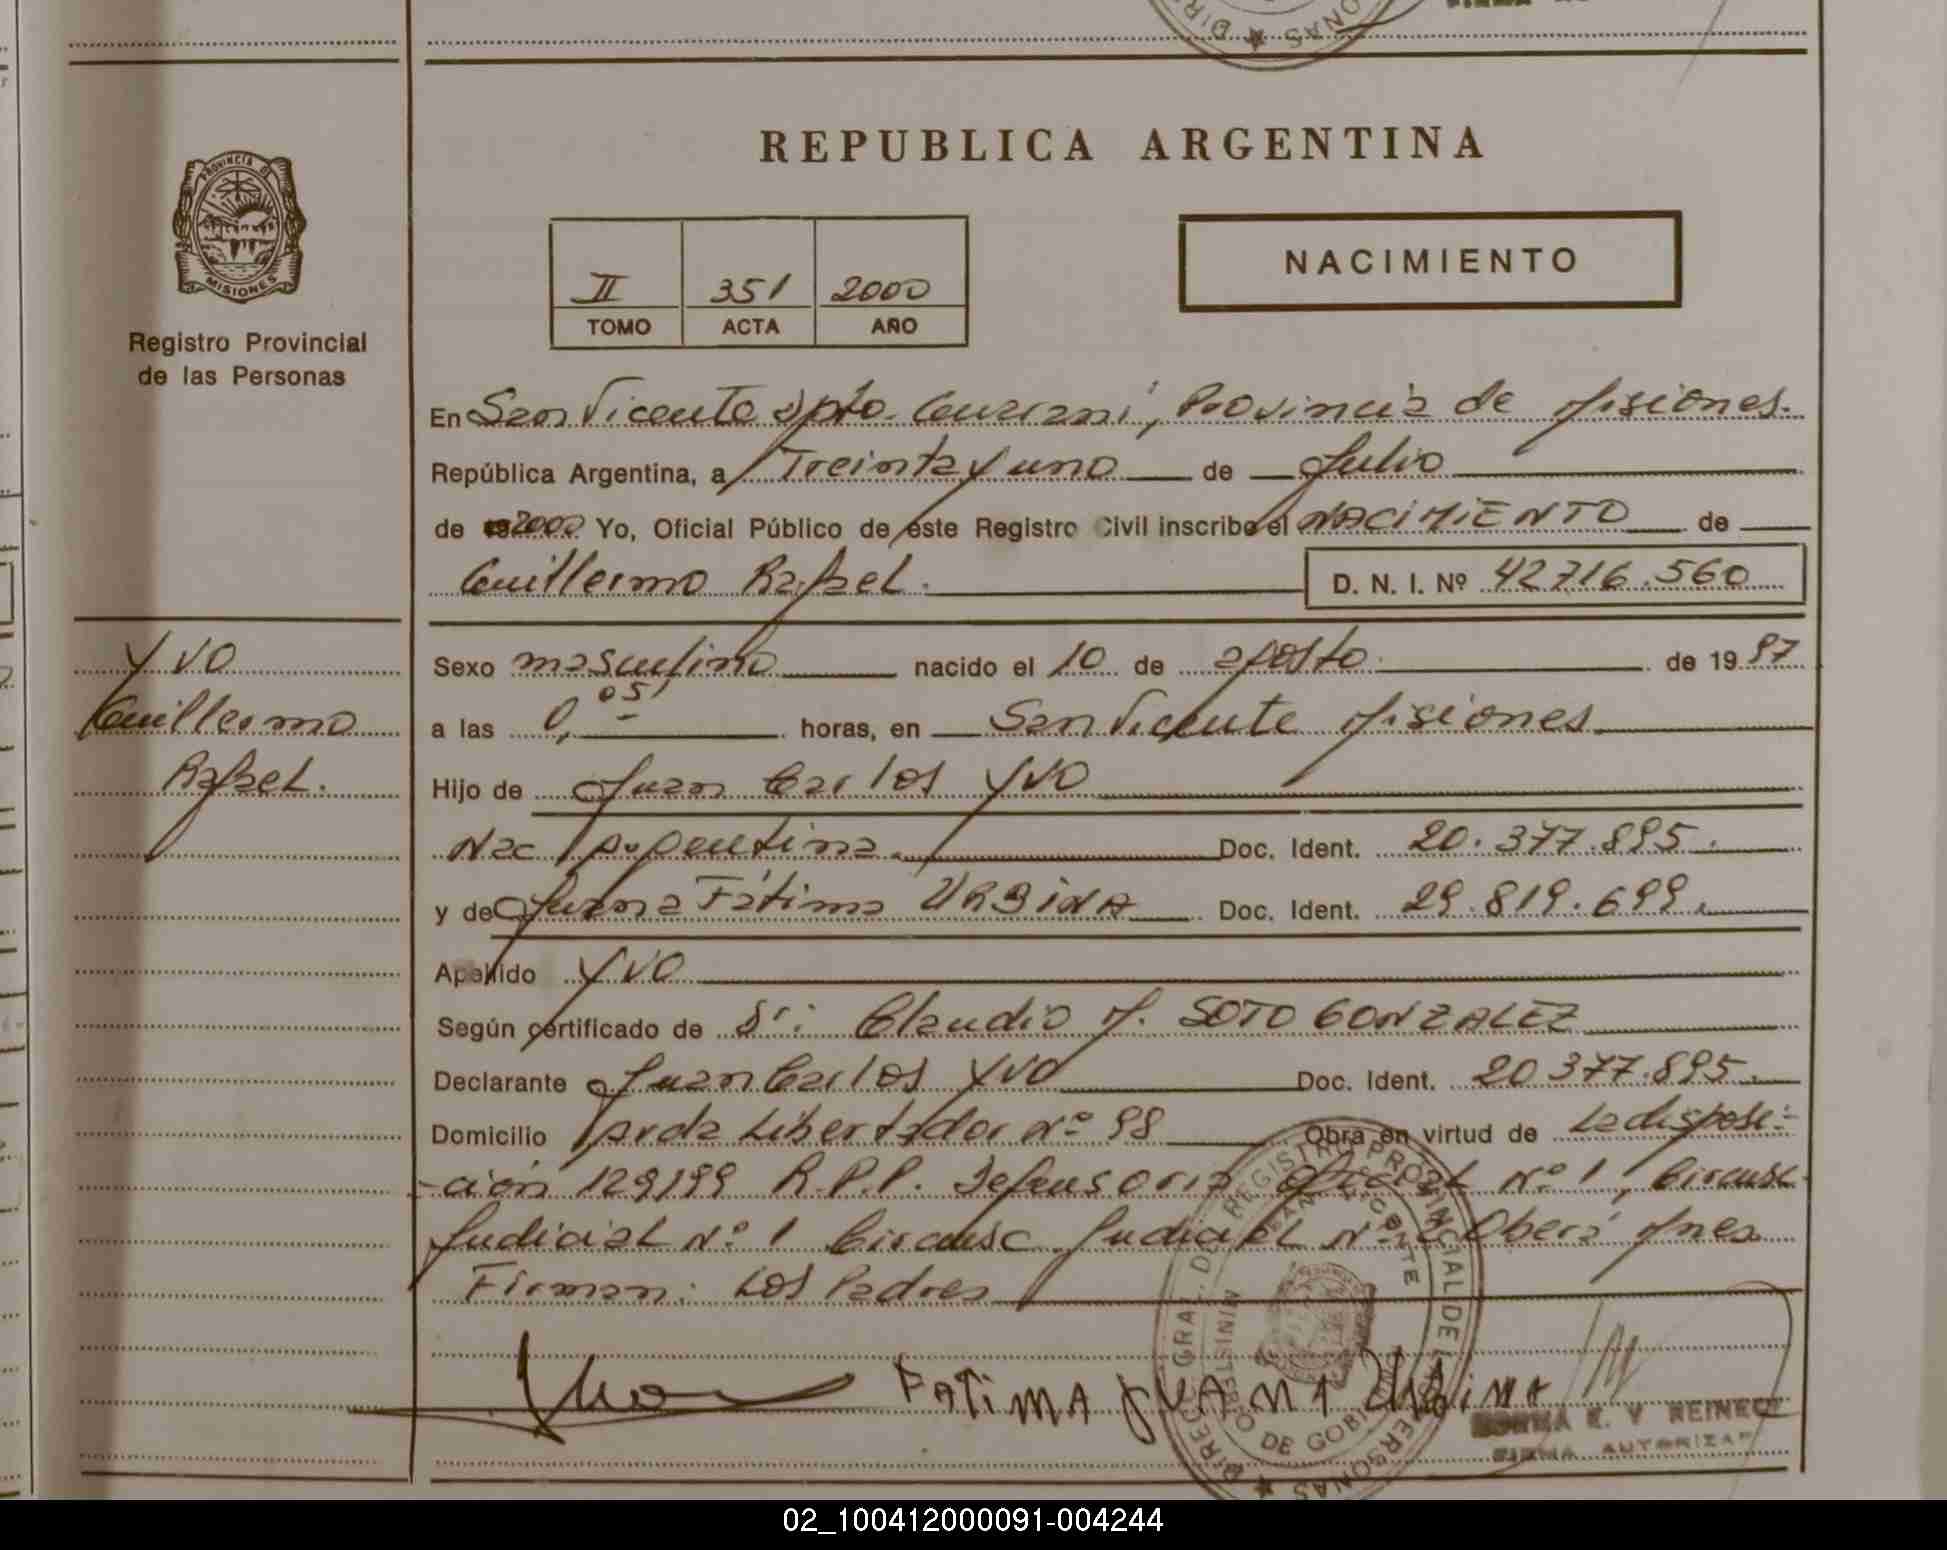 REPUBLICA ARGENTINA
PROVINCIA DE
MISIONES
Registro Provincial
de las Personas
II 351 2000
TOMO ACTA AÑO
NACIMIENTO
En San Vicente Dpto. Guaraní, Provincia de Misiones.
República Argentina, a Treinta y uno de Julio
de 2000 Yo, Oficial Público de este Registro Civil inscribo el NACIMIENTO de
Guillermo Rafael. D. N. I. Nº 42.716.560
YVO
Guillermo
Rafael.
Sexo masculino nacido el 10 de agosto de 1997
a las 0,05' horas, en San Vicente Misiones
Hijo de Juan Carlos YVO
Nac Argentina. Doc. Ident. 20.377.895.
y de Juana Fátima URBINA Doc. Ident. 29.819.699.
Apellido YVO
Según certificado de Dr: Claudio M. SOTO GONZALEZ
Declarante Juan Carlos YVO Doc. Ident. 20.377.895.
Domicilio Avda Libertador Nº 98 Obra en virtud de La disposi-
-ción 129/99 R.P.P. Defensoria Oficial Nº 1, Circunsc
Judicial Nº 1 Circunsc Judicial Nº Oberá Mnes.
Firman: Los Padres
FATIMA JUANA URBINA
NORMA E. V REINECK
FIRMA AUTORIZAD
02_100412000091-004244